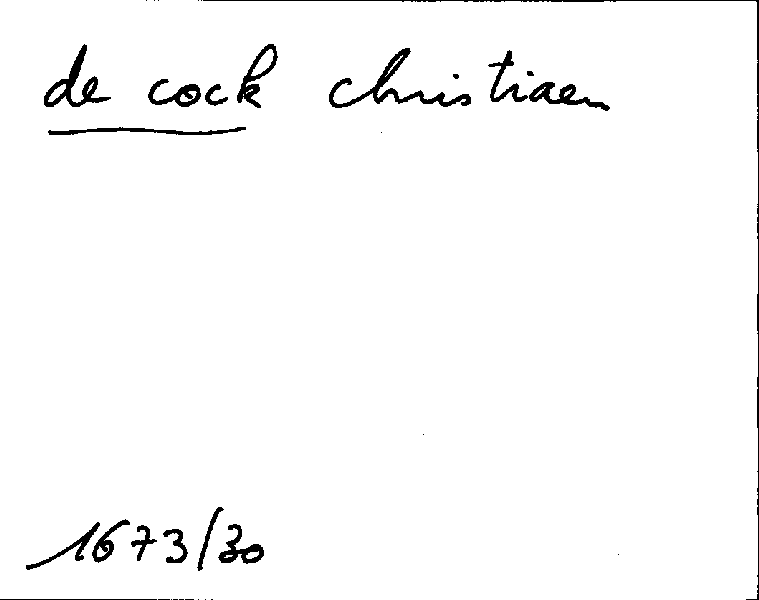 de cock christiaen
1673/30